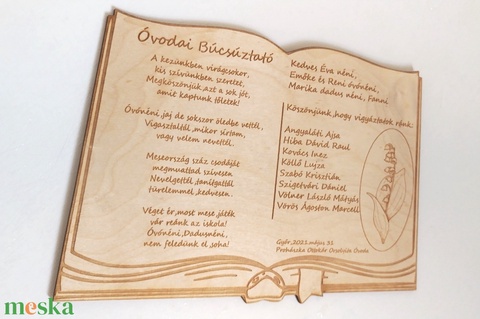 Óvodai Búcsúztató
A kezünkben virágcsokor,
kis szívünkben szeretet,
Megköszönjük azt a sok jót,
amit kaptunk tőletek!
Óvónéni,jaj de sokszor öledbe vettél,
Vigasztaltál,mikor sírtam,
vagy velem nevettél.
Meseország száz csodáját
megmuattad szívesen
Nevelgettél,tanítgattál
türelemmel,kedvesen.
Véget ér,most mese,játék,
vár reánk az iskola!
Óvónéni,Dadusnéni,
nem feledünk el,soha!
Kedves Éva néni,
Emőke és Reni óvónéni,
Marika dadus néni, Fanni
Köszönjünk,hogy vigyáztatok ránk
Angyaláti Ajsa
Hiba Dávid Raul
Kovács Inez
Köllő Lujza
Szabó Krisztián
Szigetvári Dániel
Völner László Mátyás
Vörös Ágoston Marcell
Győr,2021.május 31
Prohászka Ottokár Orsolyita Óvoda
meska